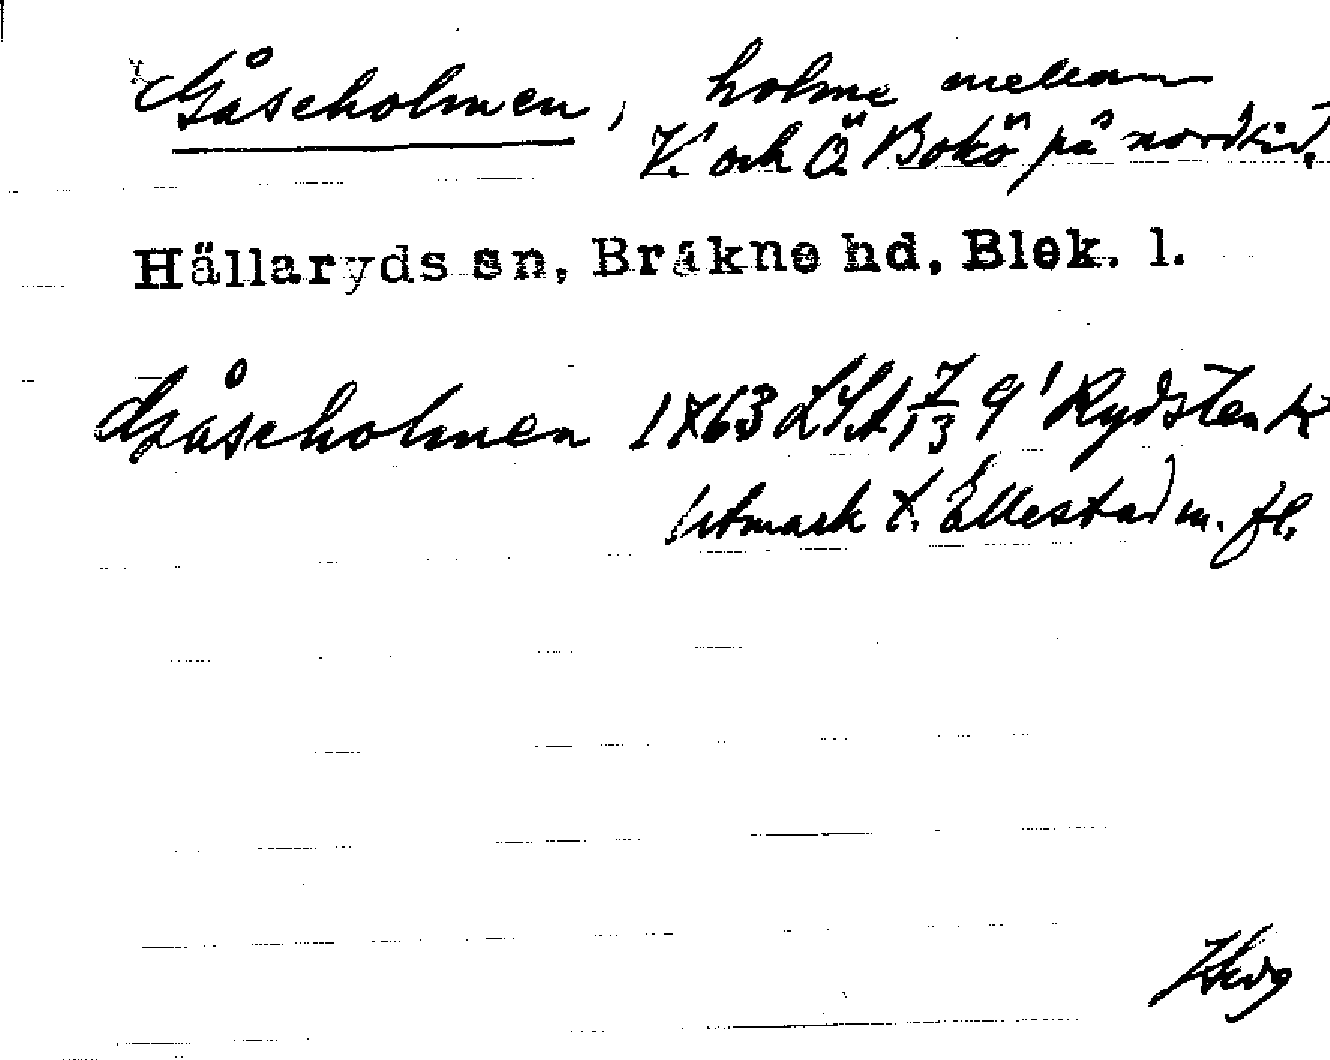 Gåseholmen, holme mellan
V. och Ö. Bokö på nordsid.
Hällaryds sn, Bräkne hd, Blek. l.
Gåseholmen 1863 LSA 7/13 9' Rydsten k
Utmark t. Ellestad m. fl.